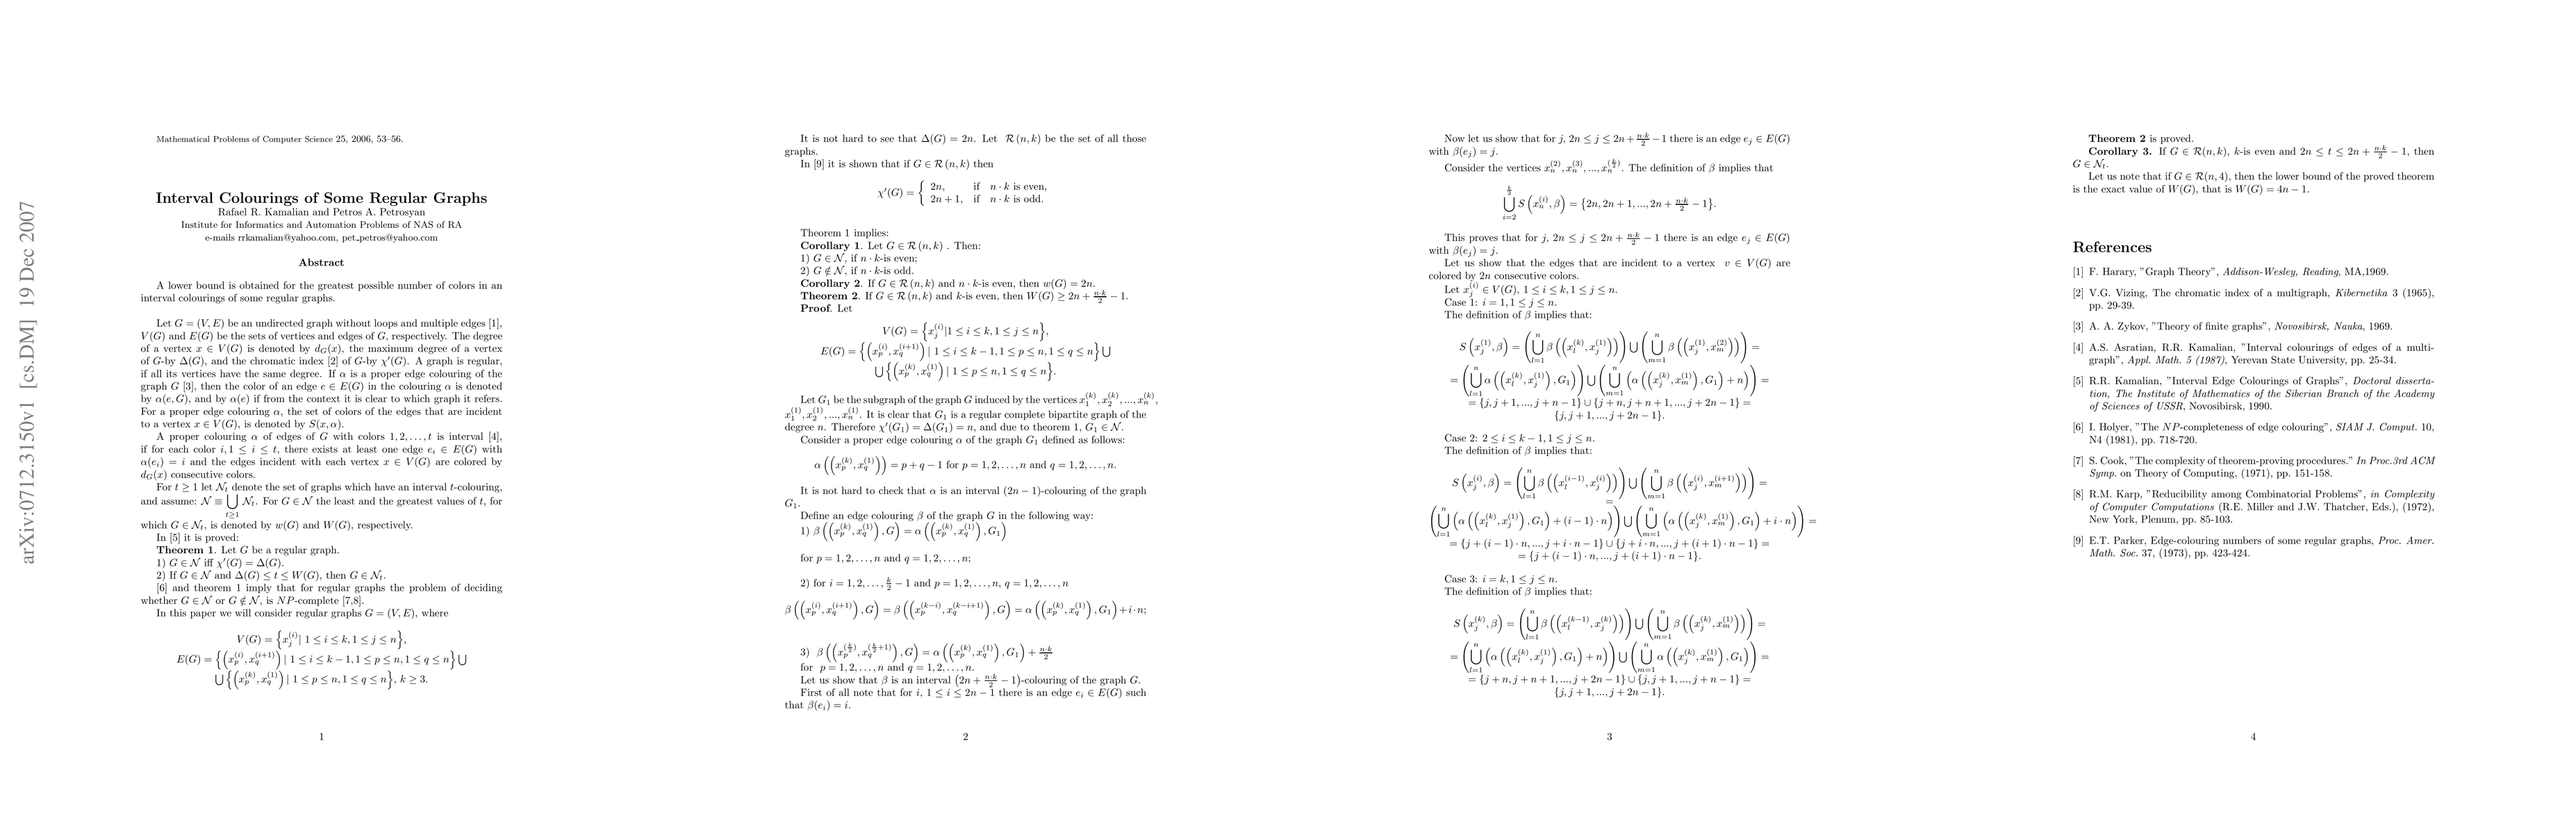 arXiv:0712.3150v1 [cs.DM] 19 Dec 2007
Mathematical Problems of Computer Science 25, 2006, 53–56.
Interval Colourings of Some Regular Graphs
Rafael R. Kamalian and Petros A. Petrosyan
Institute for Informatics and Automation Problems of NAS of RA
e-mails rrkamalian@yahoo.com, pet_petros@yahoo.com
Abstract
A lower bound is obtained for the greatest possible number of colors in an
interval colourings of some regular graphs.
Let G = (V, E) be an undirected graph without loops and multiple edges [1],
V(G) and E(G) be the sets of vertices and edges of G, respectively. The degree
of a vertex x ∈ V(G) is denoted by d_G(x), the maximum degree of a vertex
of G-by Δ(G), and the chromatic index [2] of G-by χ′(G). A graph is regular,
if all its vertices have the same degree. If α is a proper edge colouring of the
graph G [3], then the color of an edge e ∈ E(G) in the colouring α is denoted
by α(e, G), and by α(e) if from the context it is clear to which graph it refers.
For a proper edge colouring α, the set of colors of the edges that are incident
to a vertex x ∈ V(G), is denoted by S(x, α).
A proper colouring α of edges of G with colors 1, 2, . . . , t is interval [4],
if for each color i, 1 ≤ i ≤ t, there exists at least one edge e_i ∈ E(G) with
α(e_i) = i and the edges incident with each vertex x ∈ V(G) are colored by
d_G(x) consecutive colors.
For t ≥ 1 let N_t denote the set of graphs which have an interval t-colouring,
and assume: N ≡ ⋃_{t≥1} N_t. For G ∈ N the least and the greatest values of t, for
which G ∈ N_t, is denoted by w(G) and W(G), respectively.
In [5] it is proved:
Theorem 1. Let G be a regular graph.
1) G ∈ N iff χ′(G) = Δ(G).
2) If G ∈ N and Δ(G) ≤ t ≤ W(G), then G ∈ N_t.
[6] and theorem 1 imply that for regular graphs the problem of deciding
whether G ∈ N or G ∉ N, is NP-complete [7,8].
In this paper we will consider regular graphs G = (V, E), where
V(G) = {x_j^{(i)} | 1 ≤ i ≤ k, 1 ≤ j ≤ n},
E(G) = {(x_p^{(i)}, x_q^{(i+1)}) | 1 ≤ i ≤ k − 1, 1 ≤ p ≤ n, 1 ≤ q ≤ n} ⋃
⋃ {(x_p^{(k)}, x_q^{(1)}) | 1 ≤ p ≤ n, 1 ≤ q ≤ n}, k ≥ 3.
1
It is not hard to see that Δ(G) = 2n. Let R(n, k) be the set of all those
graphs.
In [9] it is shown that if G ∈ R(n, k) then
χ′(G) = { 2n, if n · k is even,
2n + 1, if n · k is odd.
Theorem 1 implies:
Corollary 1. Let G ∈ R(n, k) . Then:
1) G ∈ N, if n · k-is even;
2) G ∉ N, if n · k-is odd.
Corollary 2. If G ∈ R(n, k) and n · k-is even, then w(G) = 2n.
Theorem 2. If G ∈ R(n, k) and k-is even, then W(G) ≥ 2n + n·k/2 − 1.
Proof. Let
V(G) = {x_j^{(i)} |1 ≤ i ≤ k, 1 ≤ j ≤ n},
E(G) = {(x_p^{(i)}, x_q^{(i+1)}) | 1 ≤ i ≤ k − 1, 1 ≤ p ≤ n, 1 ≤ q ≤ n} ⋃
⋃ {(x_p^{(k)}, x_q^{(1)}) | 1 ≤ p ≤ n, 1 ≤ q ≤ n}.
Let G_1 be the subgraph of the graph G induced by the vertices x_1^{(k)}, x_2^{(k)}, ..., x_n^{(k)},
x_1^{(1)}, x_2^{(1)}, ..., x_n^{(1)}. It is clear that G_1 is a regular complete bipartite graph of the
degree n. Therefore χ′(G_1) = Δ(G_1) = n, and due to theorem 1, G_1 ∈ N.
Consider a proper edge colouring α of the graph G_1 defined as follows:
α((x_p^{(k)}, x_q^{(1)})) = p + q − 1 for p = 1, 2, . . . , n and q = 1, 2, . . . , n.
It is not hard to check that α is an interval (2n − 1)-colouring of the graph
G_1.
Define an edge colouring β of the graph G in the following way:
1) β((x_p^{(k)}, x_q^{(1)}), G) = α((x_p^{(k)}, x_q^{(1)}), G_1)
for p = 1, 2, . . . , n and q = 1, 2, . . . , n;
2) for i = 1, 2, . . . , k/2 − 1 and p = 1, 2, . . . , n, q = 1, 2, . . . , n
β((x_p^{(i)}, x_q^{(i+1)}), G) = β((x_p^{(k−i)}, x_q^{(k−i+1)}), G) = α((x_p^{(k)}, x_q^{(1)}), G_1) + i · n;
3) β((x_p^{(k/2)}, x_q^{(k/2+1)}), G) = α((x_p^{(k)}, x_q^{(1)}), G_1) + n·k/2
for p = 1, 2, . . . , n and q = 1, 2, . . . , n.
Let us show that β is an interval (2n + n·k/2 − 1)-colouring of the graph G.
First of all note that for i, 1 ≤ i ≤ 2n − 1 there is an edge e_i ∈ E(G) such
that β(e_i) = i.
2
Now let us show that for j, 2n ≤ j ≤ 2n + n·k/2 − 1 there is an edge e_j ∈ E(G)
with β(e_j) = j.
Consider the vertices x_n^{(2)}, x_n^{(3)}, ..., x_n^{(k/2)}. The definition of β implies that
⋃_{i=2}^{k/2} S(x_n^{(i)}, β) = {2n, 2n + 1, ..., 2n + n·k/2 − 1}.
This proves that for j, 2n ≤ j ≤ 2n + n·k/2 − 1 there is an edge e_j ∈ E(G)
with β(e_j) = j.
Let us show that the edges that are incident to a vertex v ∈ V(G) are
colored by 2n consecutive colors.
Let x_j^{(i)} ∈ V(G), 1 ≤ i ≤ k, 1 ≤ j ≤ n.
Case 1: i = 1, 1 ≤ j ≤ n.
The definition of β implies that:
S(x_j^{(1)}, β) = (⋃_{l=1}^{n} β((x_l^{(k)}, x_j^{(1)}))) ⋃ (⋃_{m=1}^{n} β((x_j^{(1)}, x_m^{(2)}))) =
= (⋃_{l=1}^{n} α((x_l^{(k)}, x_j^{(1)}), G_1)) ⋃ (⋃_{m=1}^{n} (α((x_j^{(k)}, x_m^{(1)}), G_1) + n)) =
= {j, j + 1, ..., j + n − 1} ∪ {j + n, j + n + 1, ..., j + 2n − 1} =
{j, j + 1, ..., j + 2n − 1}.
Case 2: 2 ≤ i ≤ k − 1, 1 ≤ j ≤ n.
The definition of β implies that:
S(x_j^{(i)}, β) = (⋃_{l=1}^{n} β((x_l^{(i−1)}, x_j^{(i)}))) ⋃ (⋃_{m=1}^{n} β((x_j^{(i)}, x_m^{(i+1)}))) =
=
(⋃_{l=1}^{n} (α((x_l^{(k)}, x_j^{(1)}), G_1) + (i − 1) · n)) ⋃ (⋃_{m=1}^{n} (α((x_j^{(k)}, x_m^{(1)}), G_1) + i · n)) =
= {j + (i − 1) · n, ..., j + i · n − 1} ∪ {j + i · n, ..., j + (i + 1) · n − 1} =
= {j + (i − 1) · n, ..., j + (i + 1) · n − 1}.
Case 3: i = k, 1 ≤ j ≤ n.
The definition of β implies that:
S(x_j^{(k)}, β) = (⋃_{l=1}^{n} β((x_l^{(k−1)}, x_j^{(k)}))) ⋃ (⋃_{m=1}^{n} β((x_j^{(k)}, x_m^{(1)}))) =
= (⋃_{l=1}^{n} (α((x_l^{(k)}, x_j^{(1)}), G_1) + n)) ⋃ (⋃_{m=1}^{n} α((x_j^{(k)}, x_m^{(1)}), G_1)) =
= {j + n, j + n + 1, ..., j + 2n − 1} ∪ {j, j + 1, ..., j + n − 1} =
{j, j + 1, ..., j + 2n − 1}.
3
Theorem 2 is proved.
Corollary 3. If G ∈ R(n, k), k-is even and 2n ≤ t ≤ 2n + n·k/2 − 1, then
G ∈ N_t.
Let us note that if G ∈ R(n, 4), then the lower bound of the proved theorem
is the exact value of W(G), that is W(G) = 4n − 1.
References
[1] F. Harary, ”Graph Theory”, Addison-Wesley, Reading, MA,1969.
[2] V.G. Vizing, The chromatic index of a multigraph, Kibernetika 3 (1965),
pp. 29-39.
[3] A. A. Zykov, ”Theory of finite graphs”, Novosibirsk, Nauka, 1969.
[4] A.S. Asratian, R.R. Kamalian, ”Interval colourings of edges of a multi-
graph”, Appl. Math. 5 (1987), Yerevan State University, pp. 25-34.
[5] R.R. Kamalian, ”Interval Edge Colourings of Graphs”, Doctoral disserta-
tion, The Institute of Mathematics of the Siberian Branch of the Academy
of Sciences of USSR, Novosibirsk, 1990.
[6] I. Holyer, ”The NP-completeness of edge colouring”, SIAM J. Comput. 10,
N4 (1981), pp. 718-720.
[7] S. Cook, ”The complexity of theorem-proving procedures.” In Proc.3rd ACM
Symp. on Theory of Computing, (1971), pp. 151-158.
[8] R.M. Karp, ”Reducibility among Combinatorial Problems”, in Complexity
of Computer Computations (R.E. Miller and J.W. Thatcher, Eds.), (1972),
New York, Plenum, pp. 85-103.
[9] E.T. Parker, Edge-colouring numbers of some regular graphs, Proc. Amer.
Math. Soc. 37, (1973), pp. 423-424.
4